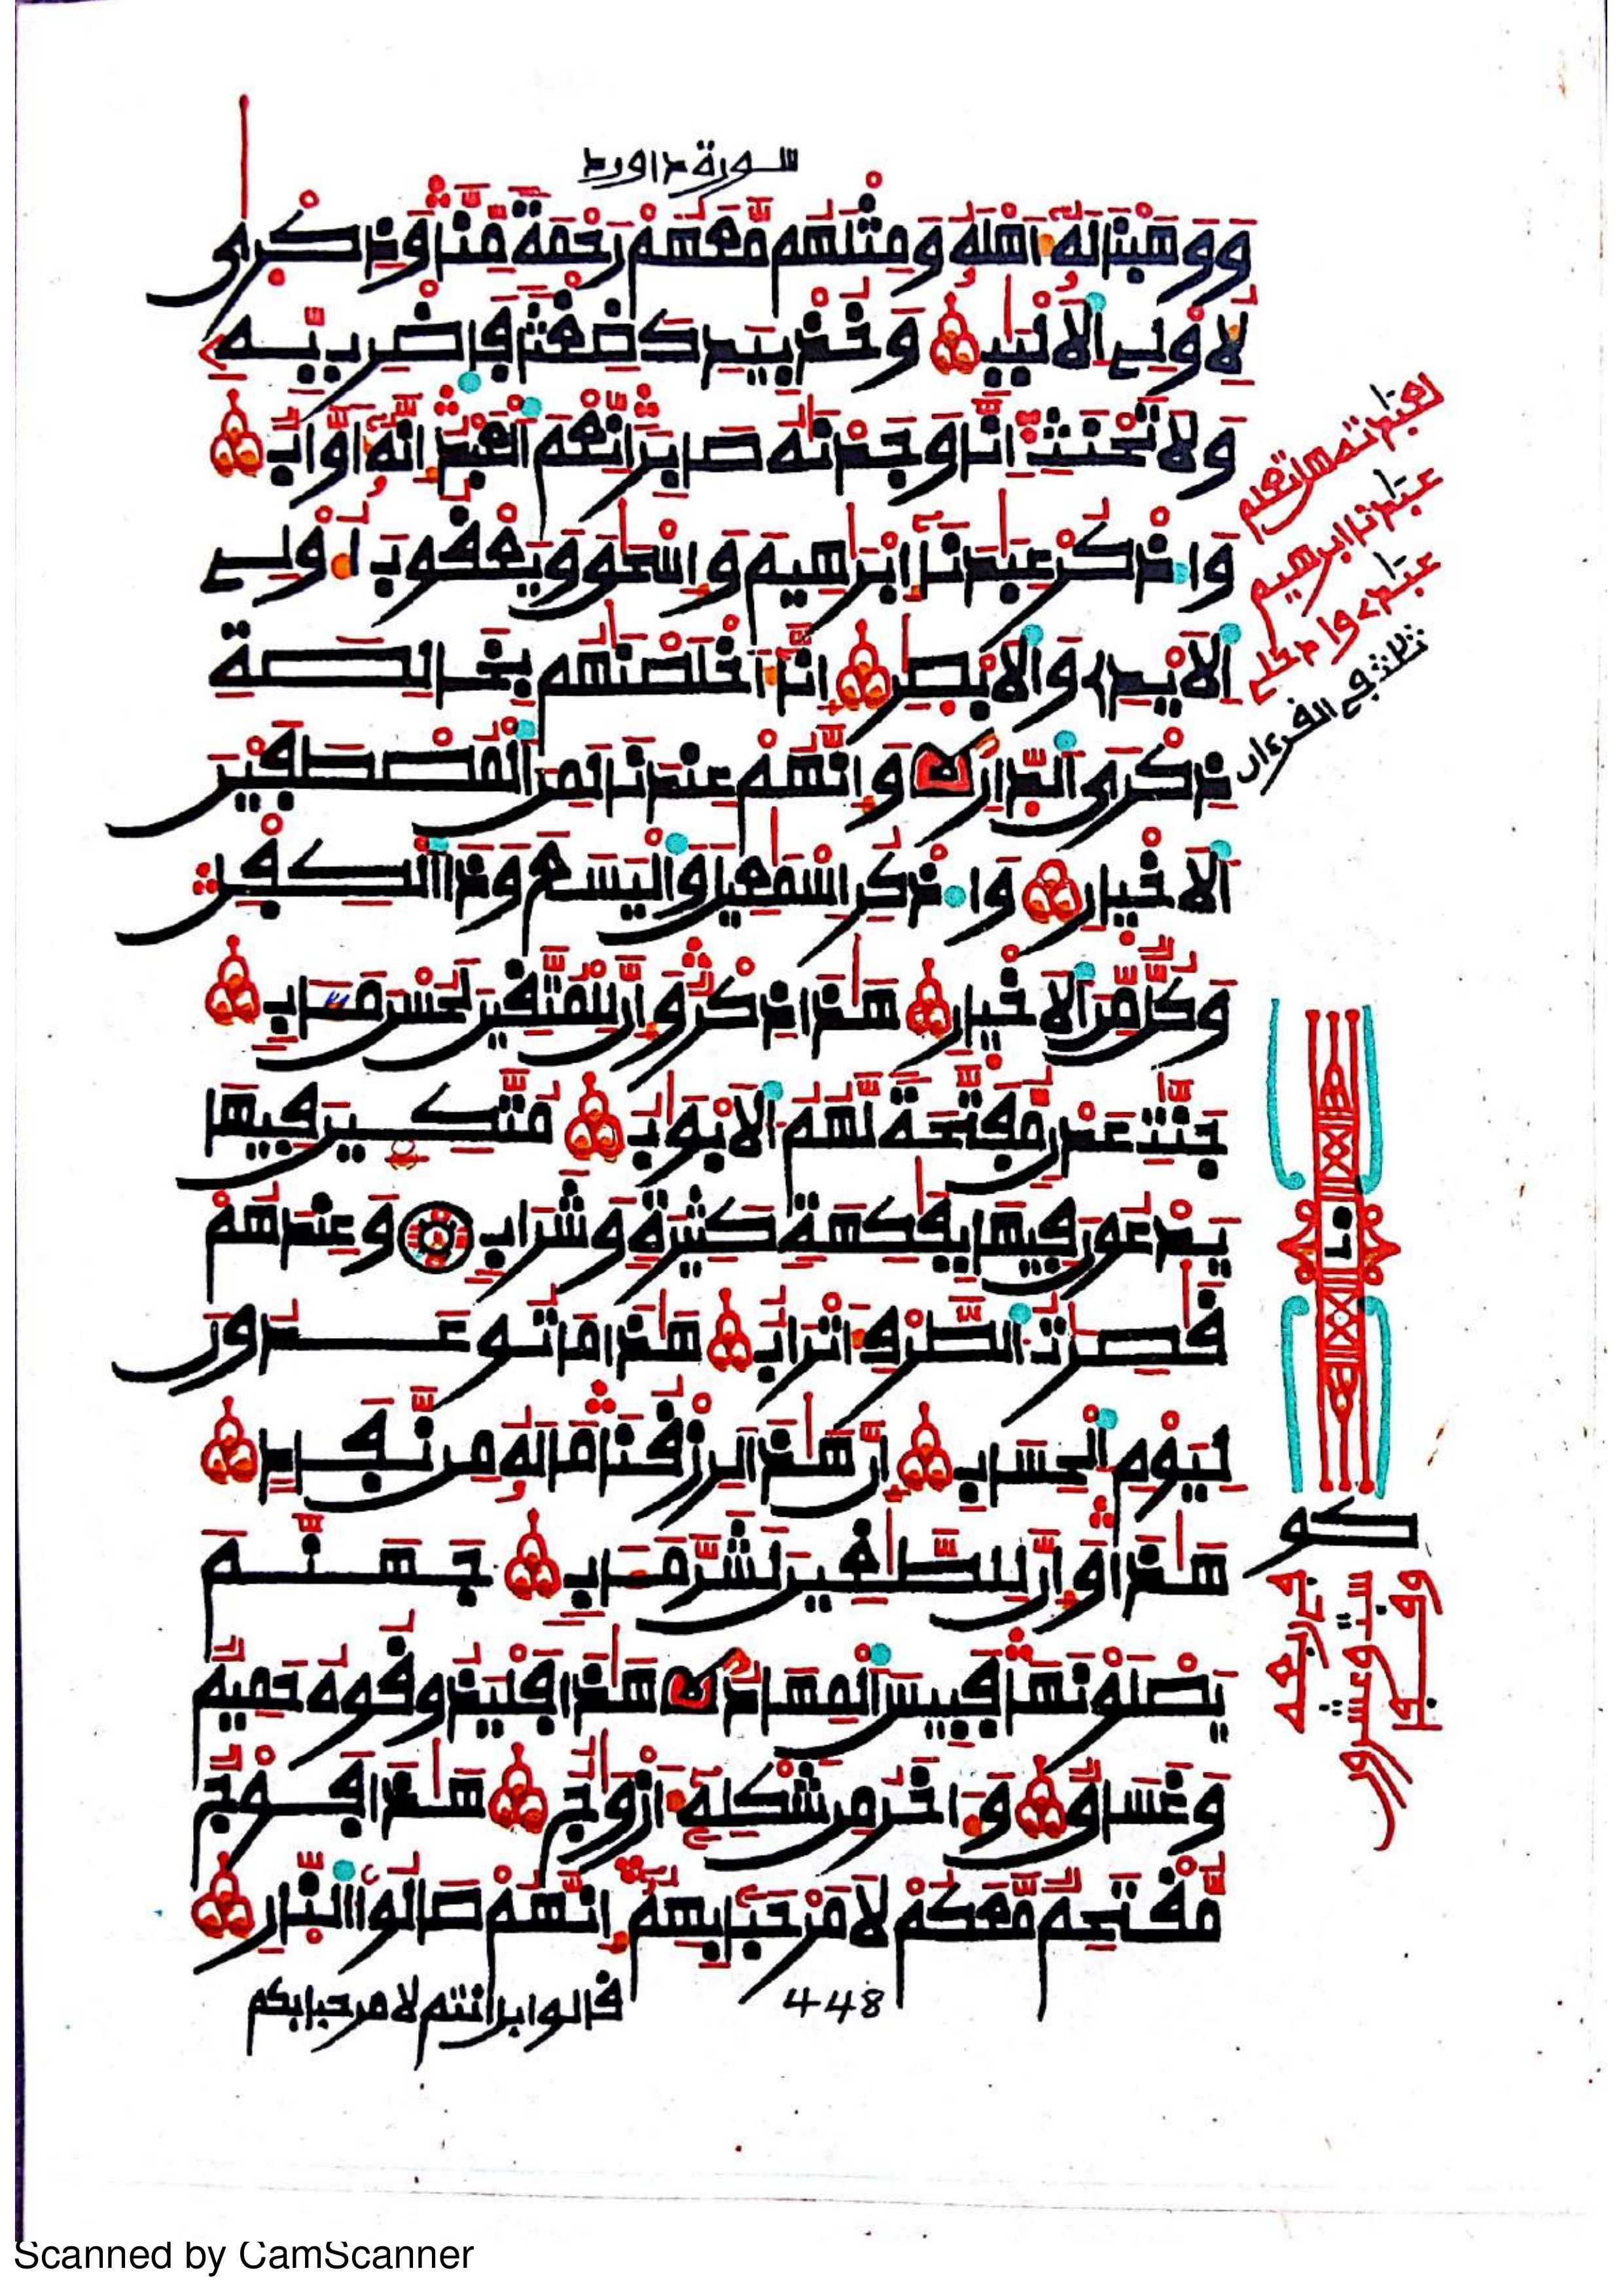 سورة داوود
وَوَهَبْنَا لَهُۥٓ أَهْلَهُۥ وَمِثْلَهُم مَّعَهُمْ رَحْمَةً مِّنَّا وَذِكْرَىٰ
لِأُوْلِے اِ۬لْأَلْبَٰبِ وَخُذْ بِيَدِكَ ضِغْثاً فَاضْرِب بِّهِۦ
وَلَا تَحْنَثْ إِنَّا وَجَدْنَٰهُ صَابِراً نِّعْمَ اَ۬لْعَبْدُ إِنَّهُۥٓ أَوَّابٌ
وَاذْكُرْ عِبَٰدَنَآ إِبْرَٰهِيمَ وَإِسْحَٰقَ وَيَعْقُوبَ أُوْلِے
اِ۬لْأَيْدِے وَالْأَبْصَٰرِ إِنَّآ أَخْلَصْنَٰهُم بِخَالِصَةِ
ذِكْرَى اَ۬لدّارِ وَإِنَّهُمْ عِندَنَا لَمِنَ اَ۬لْمُصْطَفَيْنَ
اَ۬لْأَخْيَارِ وَاذْكُرِ اِسْمَٰعِيلَ وَالْيَسَعَ وَذَا اَ۬لْكِفْلِ
وَكُلٌّ مِّنَ اَ۬لْأَخْيَارِ هَٰذَا ذِكْرٌ وَإِنَّ لِلْمُتَّقِينَ لَحُسْنَ مَـَٔابٍ
جَنَّٰتِ عَدْنٍ مُّفَتَّحَةً لَّهُمُ اُ۬لْأَبْوَٰبُ مُتَّكِـِٕينَ فِيهَا
يَدْعُونَ فِيهَا بِفَٰكِهَةٍ كَثِيرَةٍ وَشَرَابٍ وَعِندَهُمْ
قَٰصِرَٰتُ اُ۬لطَّرْفِ أَتْرَابٌ هَٰذَا مَا تُوعَدُونَ
لِيَوْمِ اِ۬لْحِسَابِ إِنَّ هَٰذَا لَرِزْقُنَا مَا لَهُۥ مِن نَّفَادٍ
هَٰذَا وَإِنَّ لِلطَّٰغِينَ لَشَرَّ مَـَٔابٍ جَهَنَّمَ
يَصْلَوْنَهَا فَبِيسَ اَ۬لْمِهَادُ هَٰذَا فَلْيَذُوقُوهُ حَمِيمٌ
وَغَسَاقٌ وَءَاخَرُ مِن شَكْلِهِۦٓ أَزْوَٰجٌ هَٰذَا فَوْجٌ
مُّقْتَحِمٌ مَّعَكُمْ لَا مَرْحَباً بِهِمُۥٓ إِنَّهُمْ صَالُوا اُ۬لنّارِ
قالوا بل انتم لا مرحبا بكم
448
عبدنا ابرهيم
ثلث في القرءان